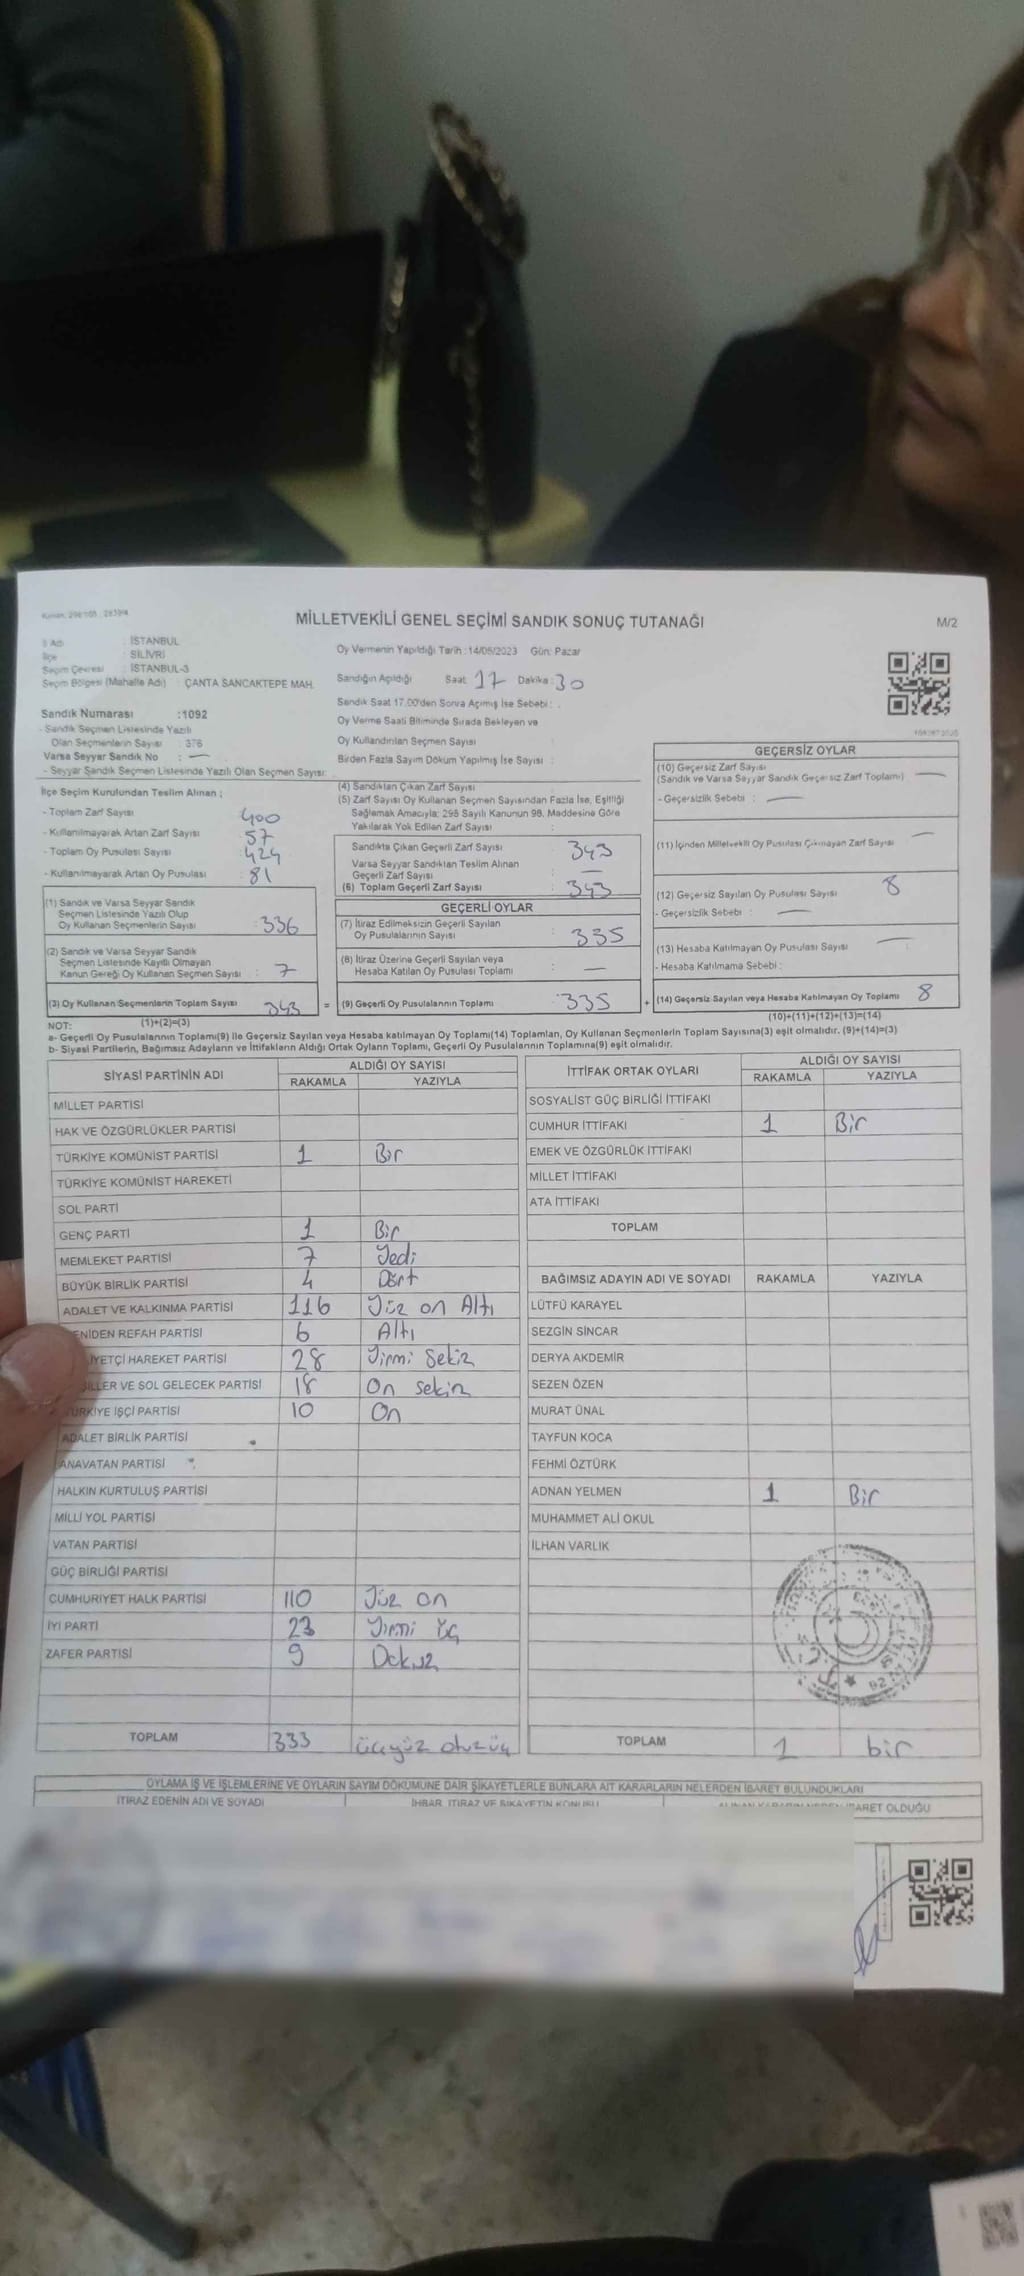 MİLLETVEKİLİ GENEL SEÇİMİ SANDIK SONUÇ TUTANAĞI
M/2
İl Adı : İSTANBUL
İlçe : SİLİVRİ
Seçim Çevresi : İSTANBUL-3
Seçim Bölgesi (Mahalle Adı) : ÇANTA SANCAKTEPE MAH.
Sandık Numarası :1092
- Sandık Seçmen Listesinde Yazılı
Olan Seçmenlerin Sayısı : 376
Varsa Seyyar Sandık No :
- Seyyar Sandık Seçmen Listesinde Yazılı Olan Seçmen Sayısı:
Oy Vermenin Yapıldığı Tarih :14/05/2023 Gün: Pazar
Sandığın Açıldığı Saat: 17 Dakika: 30
Sandık Saat 17.00'den Sonra Açımış İse Sebebi :
Oy Verme Saati Bitiminde Sırada Bekleyen ve
Oy Kullandırılan Seçmen Sayısı :
Birden Fazla Sayım Döküm Yapılmış İse Sayısı :
İlçe Seçim Kurulundan Teslim Alınan ;
- Toplam Zarf Sayısı : 400
- Kullanılmayarak Artan Zarf Sayısı : 57
- Toplam Oy Pusulası Sayısı : 424
- Kullanılmayarak Artan Oy Pusulası : 81
(1) Sandık ve Varsa Seyyar Sandık
Seçmen Listesinde Yazılı Olup
Oy Kullanan Seçmenlerin Sayısı : 336
(2) Sandık ve Varsa Seyyar Sandık
Seçmen Listesinde Kayıtlı Olmayan
Kanun Gereği Oy Kullanan Seçmen Sayısı : 7
(3) Oy Kullanan Seçmenlerin Toplam Sayısı : 343
(4) Sandıktan Çıkan Zarf Sayısı :
(5) Zarf Sayısı Oy Kullanan Seçmen Sayısından Fazla İse, Eşitliği
Sağlamak Amacıyla; 298 Sayılı Kanunun 98. Maddesine Göre
Yakılarak Yok Edilen Zarf Sayısı :
Sandıkta Çıkan Geçerli Zarf Sayısı : 343
Varsa Seyyar Sandıktan Teslim Alınan
Geçerli Zarf Sayısı : —
(6) Toplam Geçerli Zarf Sayısı : 343
GEÇERLİ OYLAR
(7) İtiraz Edilmeksizin Geçerli Sayılan
Oy Pusulalarının Sayısı : 335
(8) İtiraz Üzerine Geçerli Sayılan veya
Hesaba Katılan Oy Pusulası Toplamı : —
= (9) Geçerli Oy Pusulalarının Toplamı : 335 +
GEÇERSİZ OYLAR
(10) Geçersiz Zarf Sayısı
(Sandık ve Varsa Seyyar Sandık Geçersiz Zarf Toplamı) —
- Geçersizlik Sebebi : —
(11) İçinden Milletvekili Oy Pusulası Çıkmayan Zarf Sayısı —
(12) Geçersiz Sayılan Oy Pusulası Sayısı 8
- Geçersizlik Sebebi : —
(13) Hesaba Katılmayan Oy Pusulası Sayısı —
- Hesaba Katılmama Sebebi :
(14) Geçersiz Sayılan veya Hesaba Katılmayan Oy Toplamı 8
NOT: (1)+(2)=(3)
(10)+(11)+(12)+(13)=(14)
a- Geçerli Oy Pusulalarının Toplamı(9) ile Geçersiz Sayılan veya Hesaba katılmayan Oy Toplamı(14) Toplamları, Oy Kullanan Seçmenlerin Toplam Sayısına(3) eşit olmalıdır. (9)+(14)=(3)
b- Siyasi Partilerin, Bağımsız Adayların ve İttifakların Aldığı Ortak Oyların Toplamı, Geçerli Oy Pusulalarının Toplamına(9) eşit olmalıdır.
SİYASİ PARTİNİN ADI ALDIĞI OY SAYISI
RAKAMLA YAZIYLA
MİLLET PARTİSİ
HAK VE ÖZGÜRLÜKLER PARTİSİ
TÜRKİYE KOMÜNİST PARTİSİ 1 Bir
TÜRKİYE KOMÜNİST HAREKETİ
SOL PARTİ
GENÇ PARTİ 1 Bir
MEMLEKET PARTİSİ 7 Yedi
BÜYÜK BİRLİK PARTİSİ 4 Dört
ADALET VE KALKINMA PARTİSİ 116 Yüz on Altı
ENİDEN REFAH PARTİSİ 6 Altı
İYETÇİ HAREKET PARTİSİ 28 Yirmi Sekiz
LLER VE SOL GELECEK PARTİSİ 18 On sekiz
TÜRKİYE İŞÇİ PARTİSİ 10 On
ADALET BİRLİK PARTİSİ
ANAVATAN PARTİSİ
HALKIN KURTULUŞ PARTİSİ
MİLLİ YOL PARTİSİ
VATAN PARTİSİ
GÜÇ BİRLİĞİ PARTİSİ
CUMHURİYET HALK PARTİSİ 110 Yüz on
İYİ PARTİ 23 Yirmi üç
ZAFER PARTİSİ 9 Dokuz
TOPLAM 333 üçyüz otuzüç
İTTİFAK ORTAK OYLARI ALDIĞI OY SAYISI
RAKAMLA YAZIYLA
SOSYALİST GÜÇ BİRLİĞİ İTTİFAKI
CUMHUR İTTİFAKI 1 Bir
EMEK VE ÖZGÜRLÜK İTTİFAKI
MİLLET İTTİFAKI
ATA İTTİFAKI
TOPLAM
BAĞIMSIZ ADAYIN ADI VE SOYADI RAKAMLA YAZIYLA
LÜTFÜ KARAYEL
SEZGİN SİNCAR
DERYA AKDEMİR
SEZEN ÖZEN
MURAT ÜNAL
TAYFUN KOCA
FEHMİ ÖZTÜRK
ADNAN YELMEN 1 Bir
MUHAMMET ALİ OKUL
İLHAN VARLIK
TOPLAM 1 bir
OYLAMA İŞ VE İŞLEMLERİNE VE OYLARIN SAYIM DÖKÜMÜNE DAİR ŞİKAYETLERLE BUNLARA AİT KARARLARIN NELERDEN İBARET BULUNDUKLARI
İTİRAZ EDENİN ADI VE SOYADI İHBAR, İTİRAZ VE ŞİKAYETİN KONUSU BARET OLDUĞU